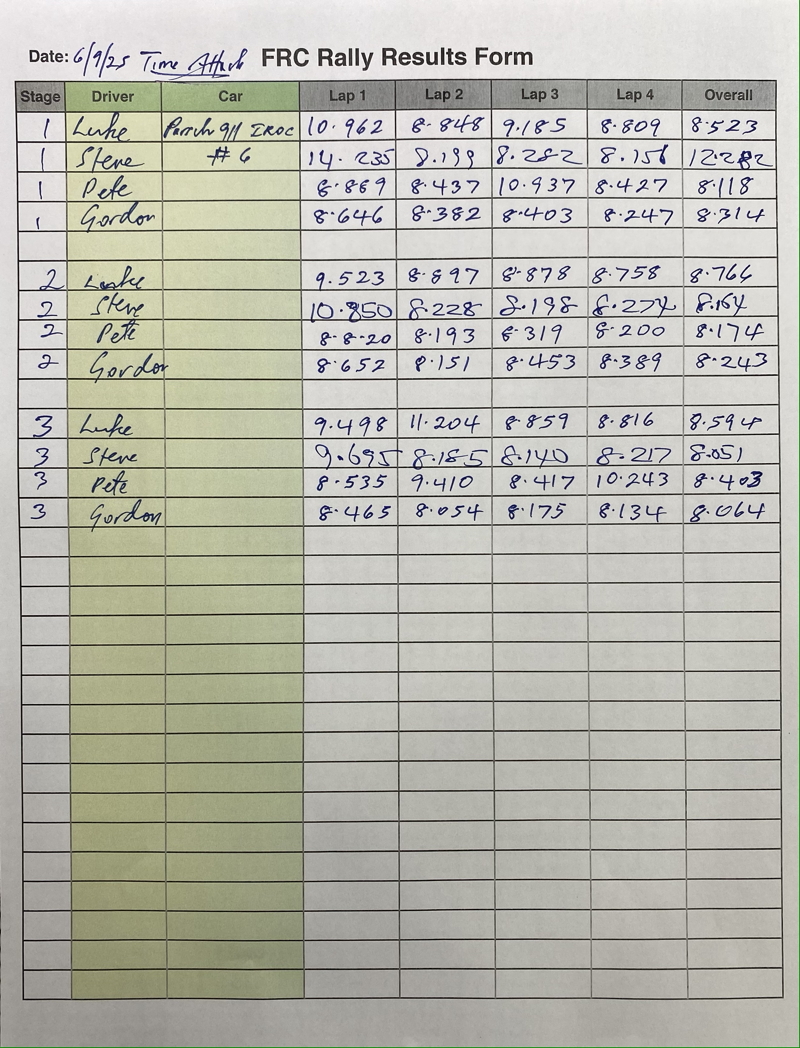 Date: 6/9/25 Time Attack FRC Rally Results Form
Stage Driver Car Lap 1 Lap 2 Lap 3 Lap 4 Overall
1 Luke Porsche 911 IROC 10.962 8.848 9.185 8.809 8.523
1 Steve #6 14.235 8.199 8.282 8.156 12.282
1 Pete 8.869 8.437 10.937 8.427 8.118
1 Gordon 8.646 8.382 8.403 8.247 8.314
2 Luke 9.523 8.897 8.878 8.758 8.766
2 Steve 10.850 8.228 8.198 8.274 8.164
2 Pete 8.8.20 8.193 8.319 8.200 8.174
2 Gordon 8.652 8.151 8.453 8.389 8.243
3 Luke 9.498 11.204 8.859 8.816 8.594
3 Steve 9.695 8.185 8.140 8.217 8.051
3 Pete 8.535 9.410 8.417 10.243 8.403
3 Gordon 8.465 8.054 8.175 8.134 8.064